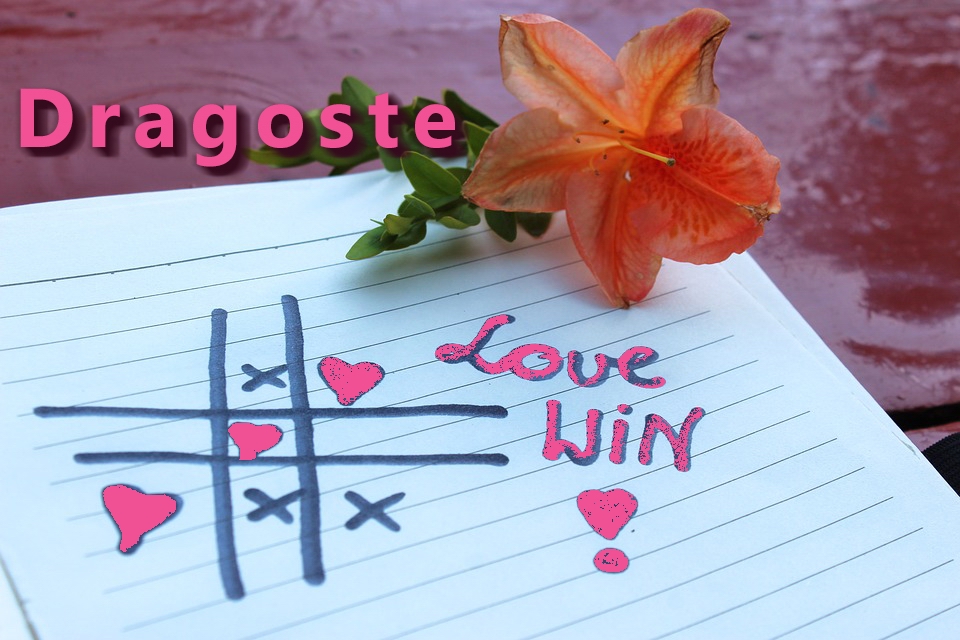 Dragoste
Love
WiN
X
X X